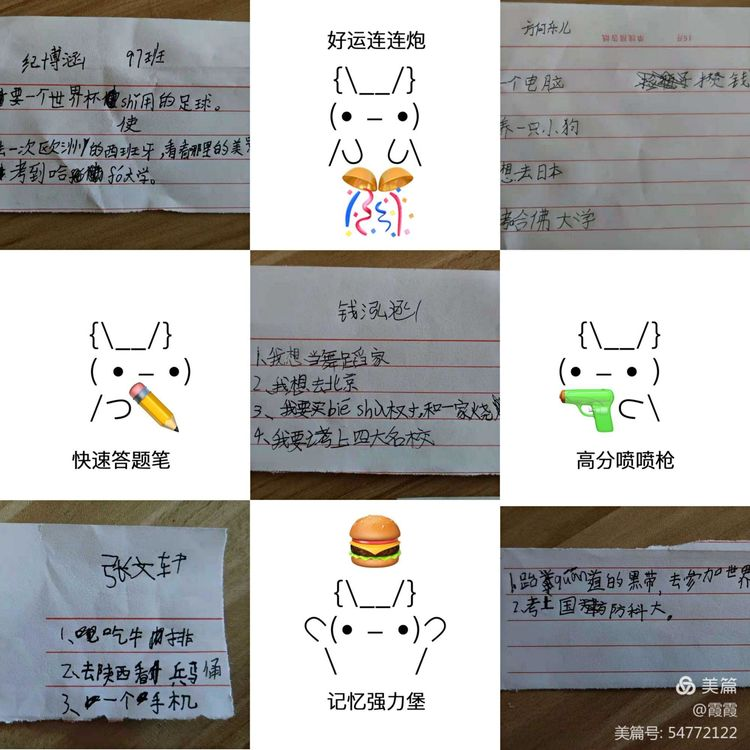 纪博涵 97班
要一个世界杯shǐ用的足球。
使
去一次欧洲的西班牙,看看那里的美
考到哈大学。
好运连连炮
{\__/}
(● – ●)
一个电脑 攒钱
养一只小狗
想去日本
考哈佛大学
{\__/}
(● – ●)
快速答题笔
钱泓涵
1、我想当舞蹈家
2、我想去北京
3、我要买bié shù权力和一家烧
4、我要考上四大名校
{\__/}
(● – ●)
高分喷喷枪
张文轩
1、吃牛排
2、去陕西看兵马俑
3、一个手机
{\__/}
(● – ●)
记忆强力堡
1.跆quán道的黑带,去参加世界
2.考上国防科大。
美篇
@霞霞
美篇号: 54772122